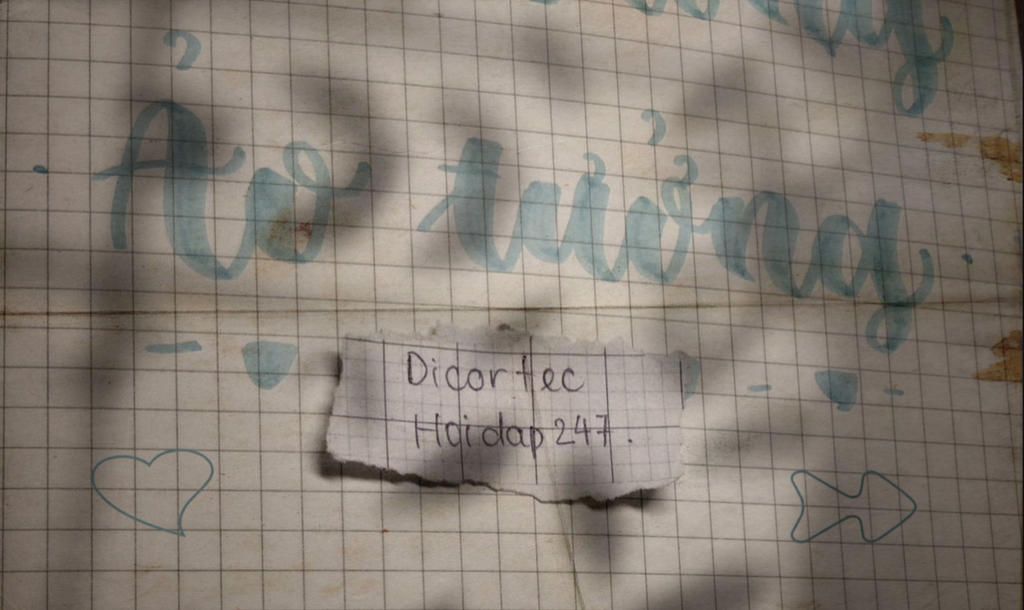 Ảo tưởng
Dicortec
Hoidap247.